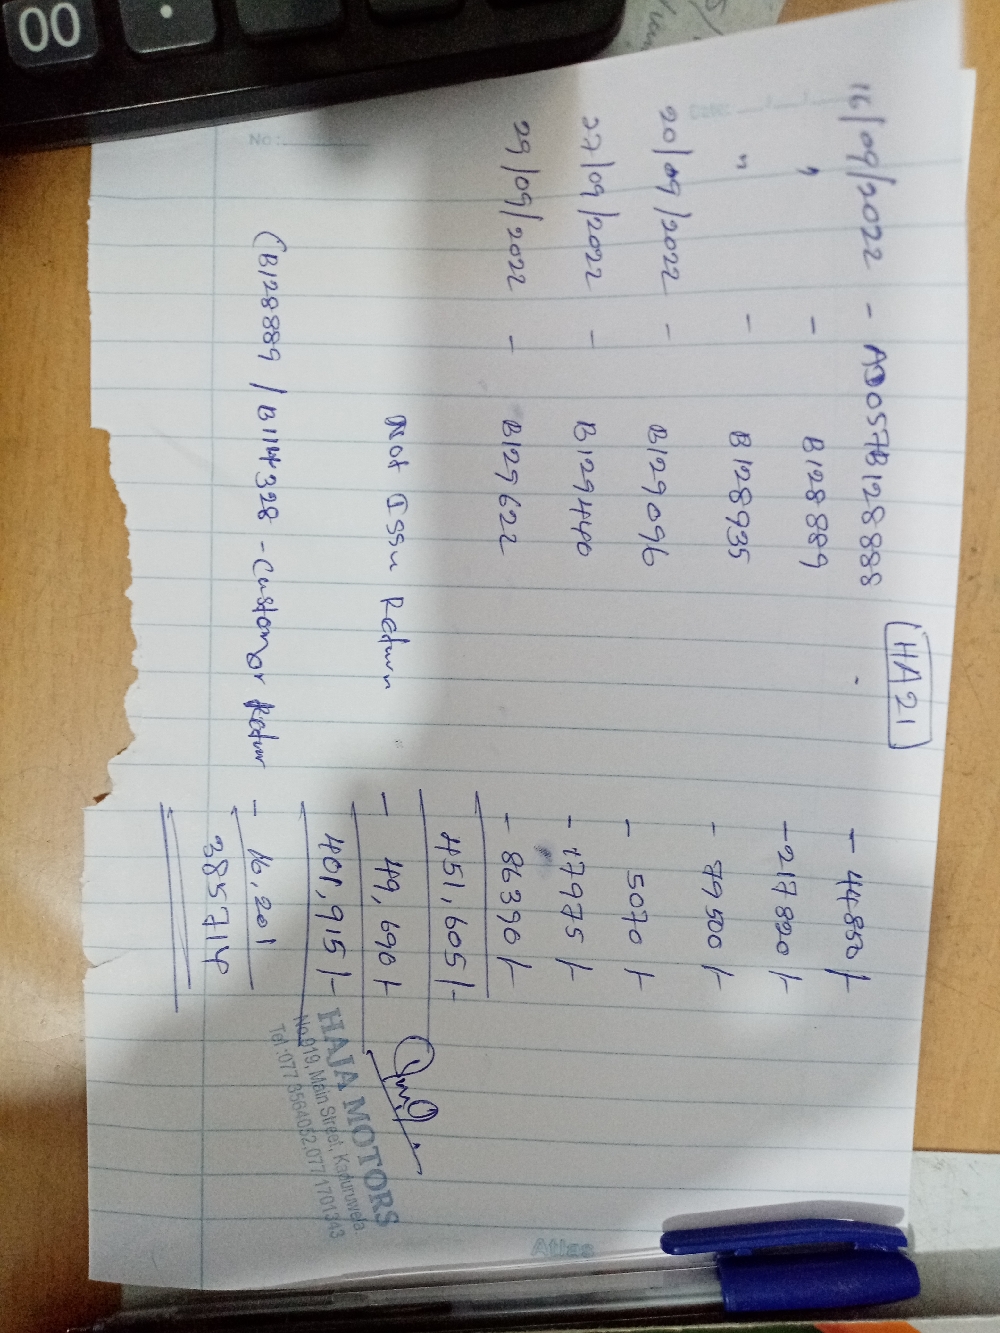 HA 21
16/09/2022 - AD057B128888 - 44850/-
" - B128889 - 217820/-
" - B128935 - 79500/-
20/09/2022 - B129096 - 5070/-
27/09/2022 - B129440 - 17975/-
29/09/2022 - B129622 - 86390/-
451,605/-
Not Issu Return - 49,690/-
401,915/-
(B128889 / B114328 - Customer Retur - 16,201
385714
HAJA MOTORS
No.919, Main Street, Kaduruwela
Tel :077 3564052,077 1701343
Date:
No:
Atlas
00